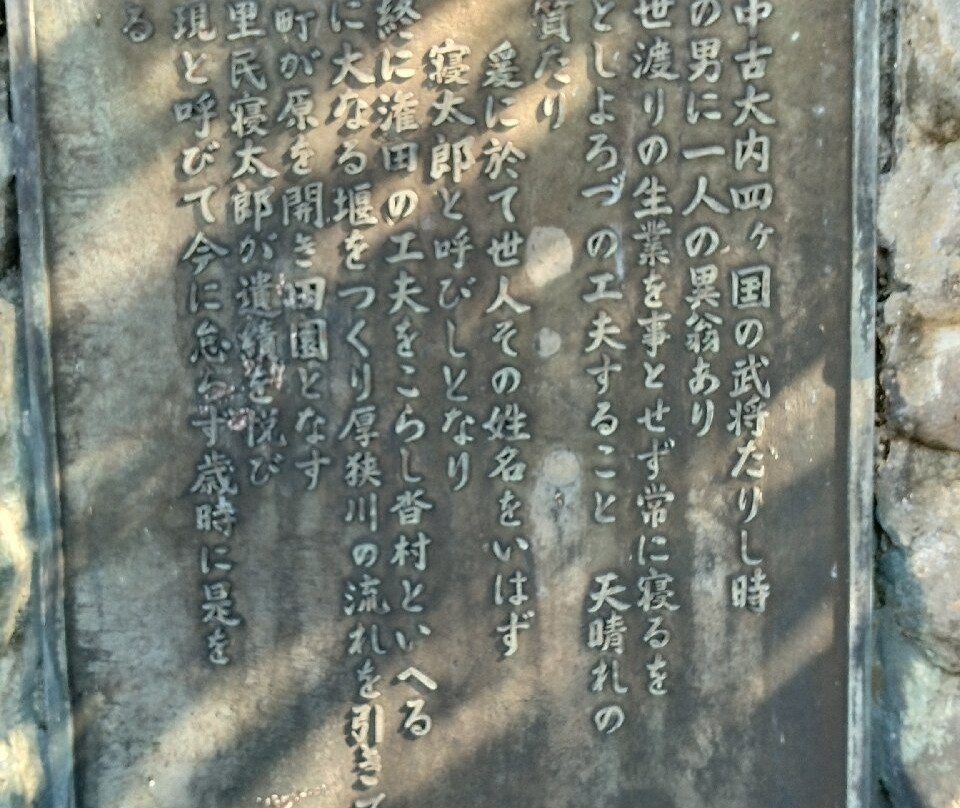 中古大内四ヶ国の武将たりし時
の男に一人の異翁あり
世渡りの生業を事とせず常に寝るを
としよろづの工夫すること　天晴れの
質たり
爰に於て世人その姓名をいはず
寝太郎と呼びしとなり
終に潅田の工夫をこらし沓村といへる
に大なる堰をつくり厚狭川の流れを引きて
町が原を開き田園となす
里民寝太郎が遺績を悦び
現と呼びて今に怠らず歳時に是を
る